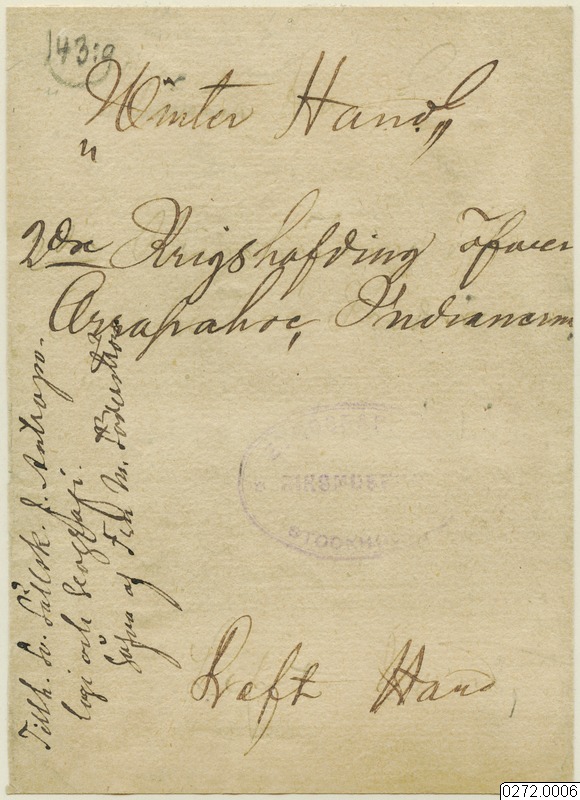 143:9
"Winter Hand"
2dre Krigshöfding öfver
Arrapahoe, Indianerna
Tillh. Sv. Sällsk. f. Antropo-
logi och Geografi.
Gåfva af Frk M. Söderström
STOCKHOLM
Left Hand,
0272.0006